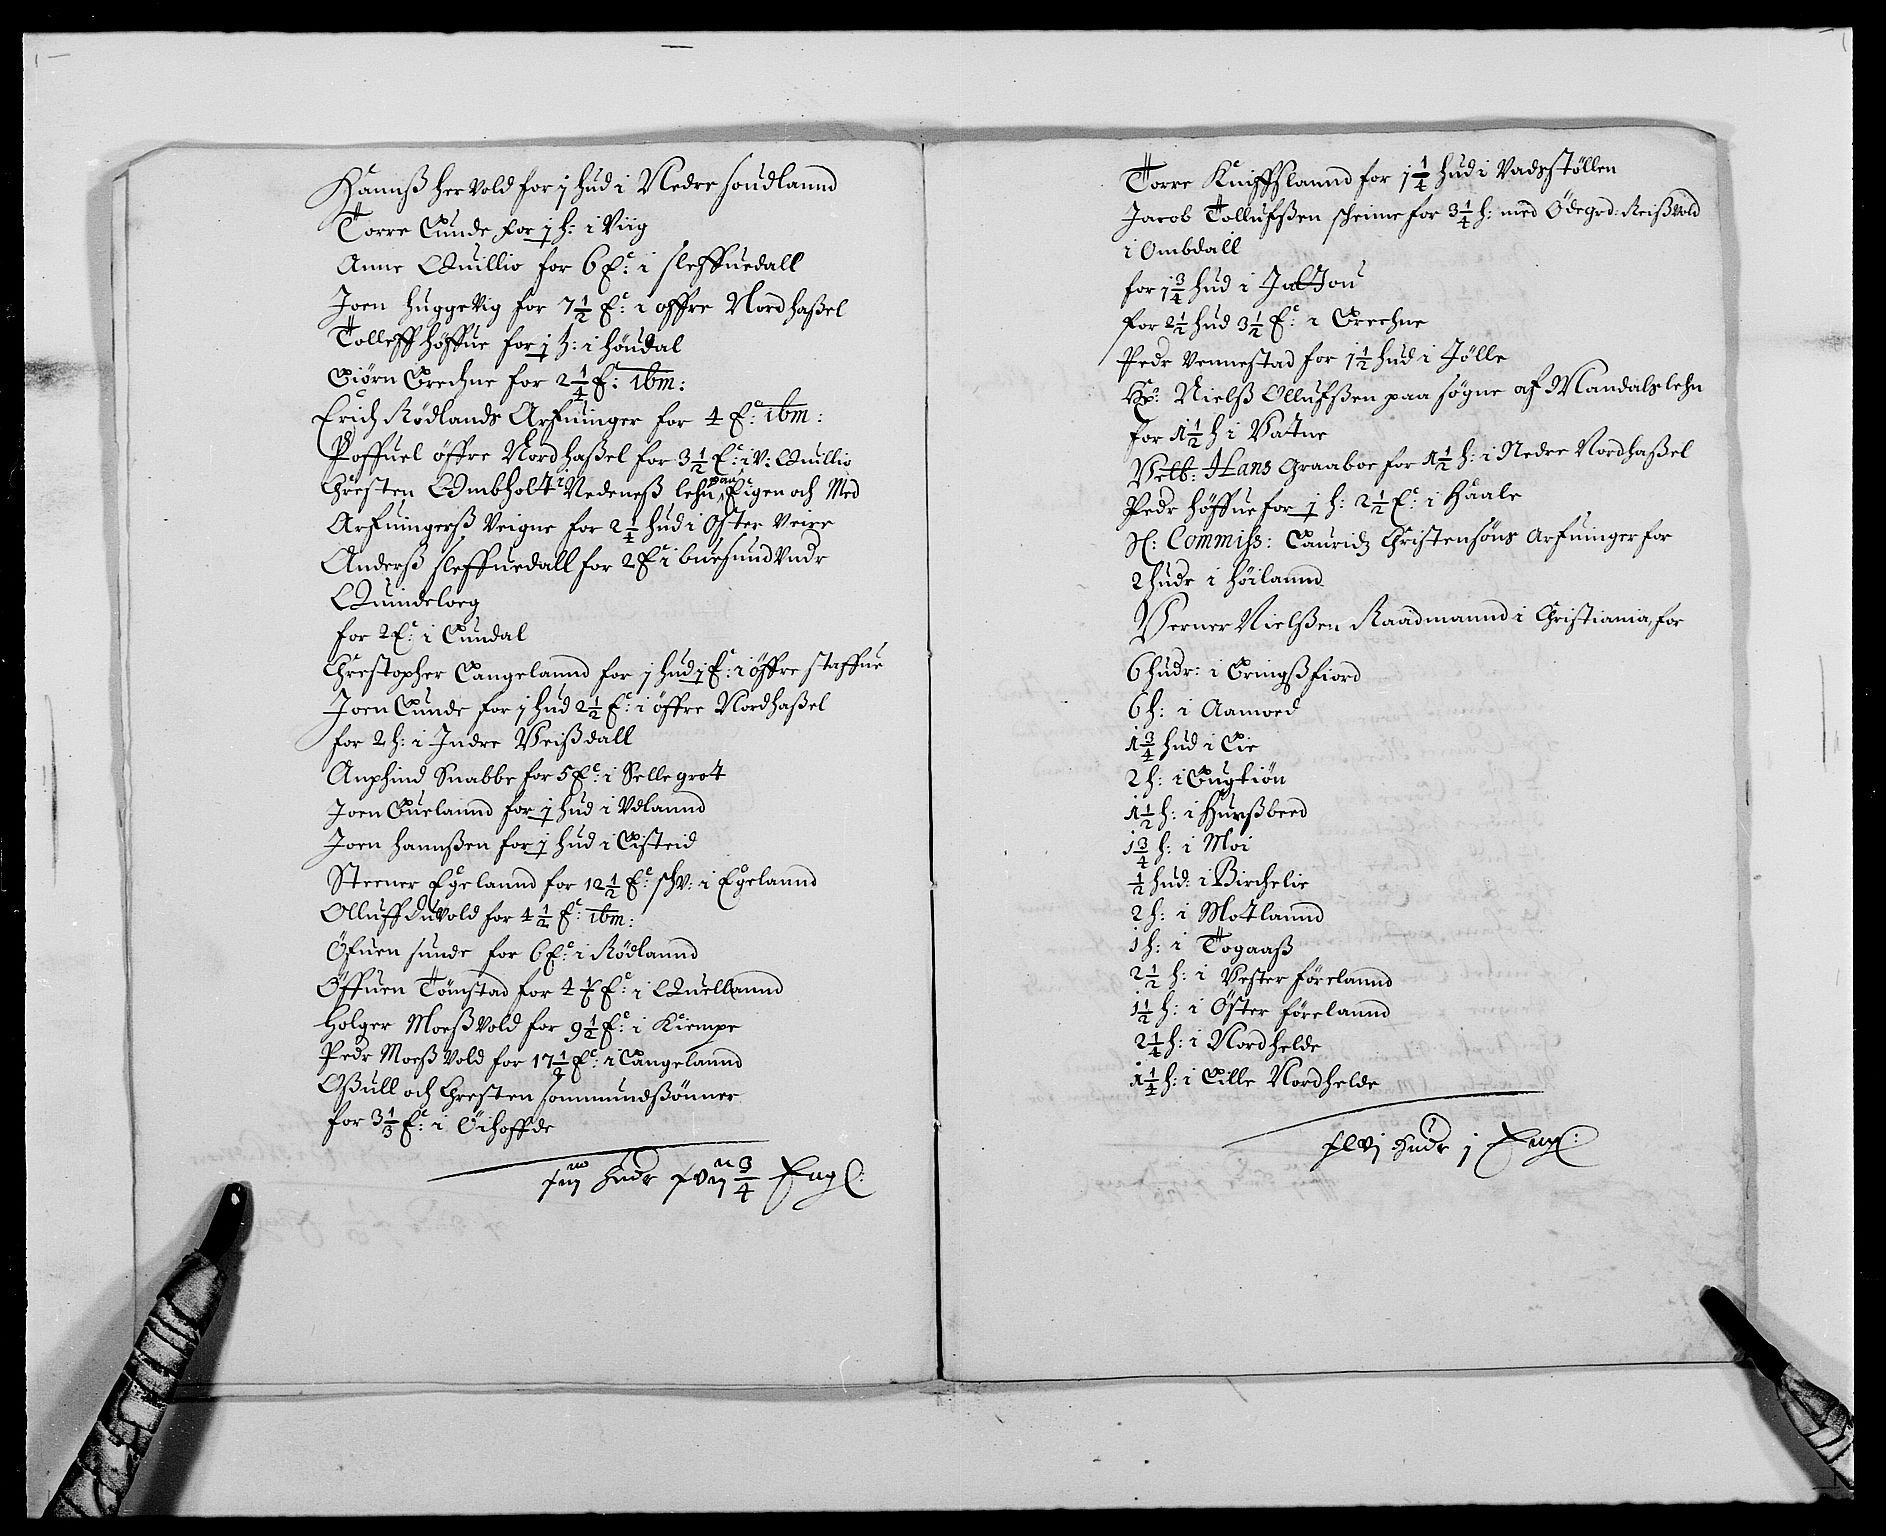 Hannß herVold for j hud i Nedre soudlannd
Torre Lunde for j h: i Viig
Anne Quillio for 6 E: i sleffuedall
Joen huggeVig for 7 1/2 E: i offre Nordhaßel
Tolleff höffue for j h: i höudal
Biörn Brechne for 2 1/4 E: ibm:
Erich Rödlands Arfuinger for 4 E: ibm:
Poffuel öffre Nordhaßel for 3 1/2 E: i V: Quillio
Chresten Ombholt i Nedeneß lehn paa Eigen och Med
Arfuingerß Veigne for 2 1/4 hud i Oster Veire
Anderß sleffuedall for 2 E i buesund Vndr
Quindeloeg
for 2 E: i Lundal
Chrestopher Langelannd for j hud j E: i öffre staffue
Joen Lunde for j hud 2 1/2 E: i öffre Nordhaßel
for 2 h: i Indre Veißdall
Anphind Snabbe for 5 E: i Sellegrot
Joen Duelannd for j hud i Vdlannd
Joen Hannßen for j hud i Listeid
Steener Egelannd for 12 1/2 E: schV: i Egelannd
Olluff DuVold for 4 1/2 E: ibm:
Öfuen sunde for 6 E: i Rödlannd
Öffuen Tömstad for 4 E: i Quellannd
Holger MoeßVold for 9 1/2 E: i Kiempe
Pedr MoeßVold for 17 1/2 E: i Langelannd
Oßull och Chresten sommundßönner
for 3 1/3 E: i Öihoffde
hudr 3/4 Engl:
Torre Kniffslannd for j 1/4 hud i Vadsstöllen
Jacob Tollufßen scheime for 3 1/4 h: med Ödegrd: Reißvold
i Ombdall
for j 3/4 hud i
for 2 1/2 hud 3 1/2 E: i Brechne
Pedr Vennestad for 1 1/2 hud i Jölle
Hr: Nielß Ollufßen paa sögne af Mandals lehn
for 1 1/2 h i Vatne
Velb: Hans Graaboe for 1 1/2 h: i Nedre Nordhaßel
Pedr höffue for j h: 2 1/2 E: i Haale
Sl: Commiss: Lauridz Christensöns Arfuinger for
2 hudr i Höilannd
Verner Nielßen Raadmannd i Christiania, for
6 hudr: i Bringßfiord
6 h: i Aamoed
1 3/4 hud i Lie
2 h: i Bugtiön
1 1/2 h: i Hurßbeed
1 3/4 h: i Moi
1/2 hud: i Birchelie
2 h: i Motlannd
1 h: i Togaaß
2 1/2 h: i Vester förelannd
1 1/2 h: i Öster förelannd
2 1/4 h: i Nordhelde
1 1/4 h: i Lille Nordhelde
xlvj Hudr j Engl: